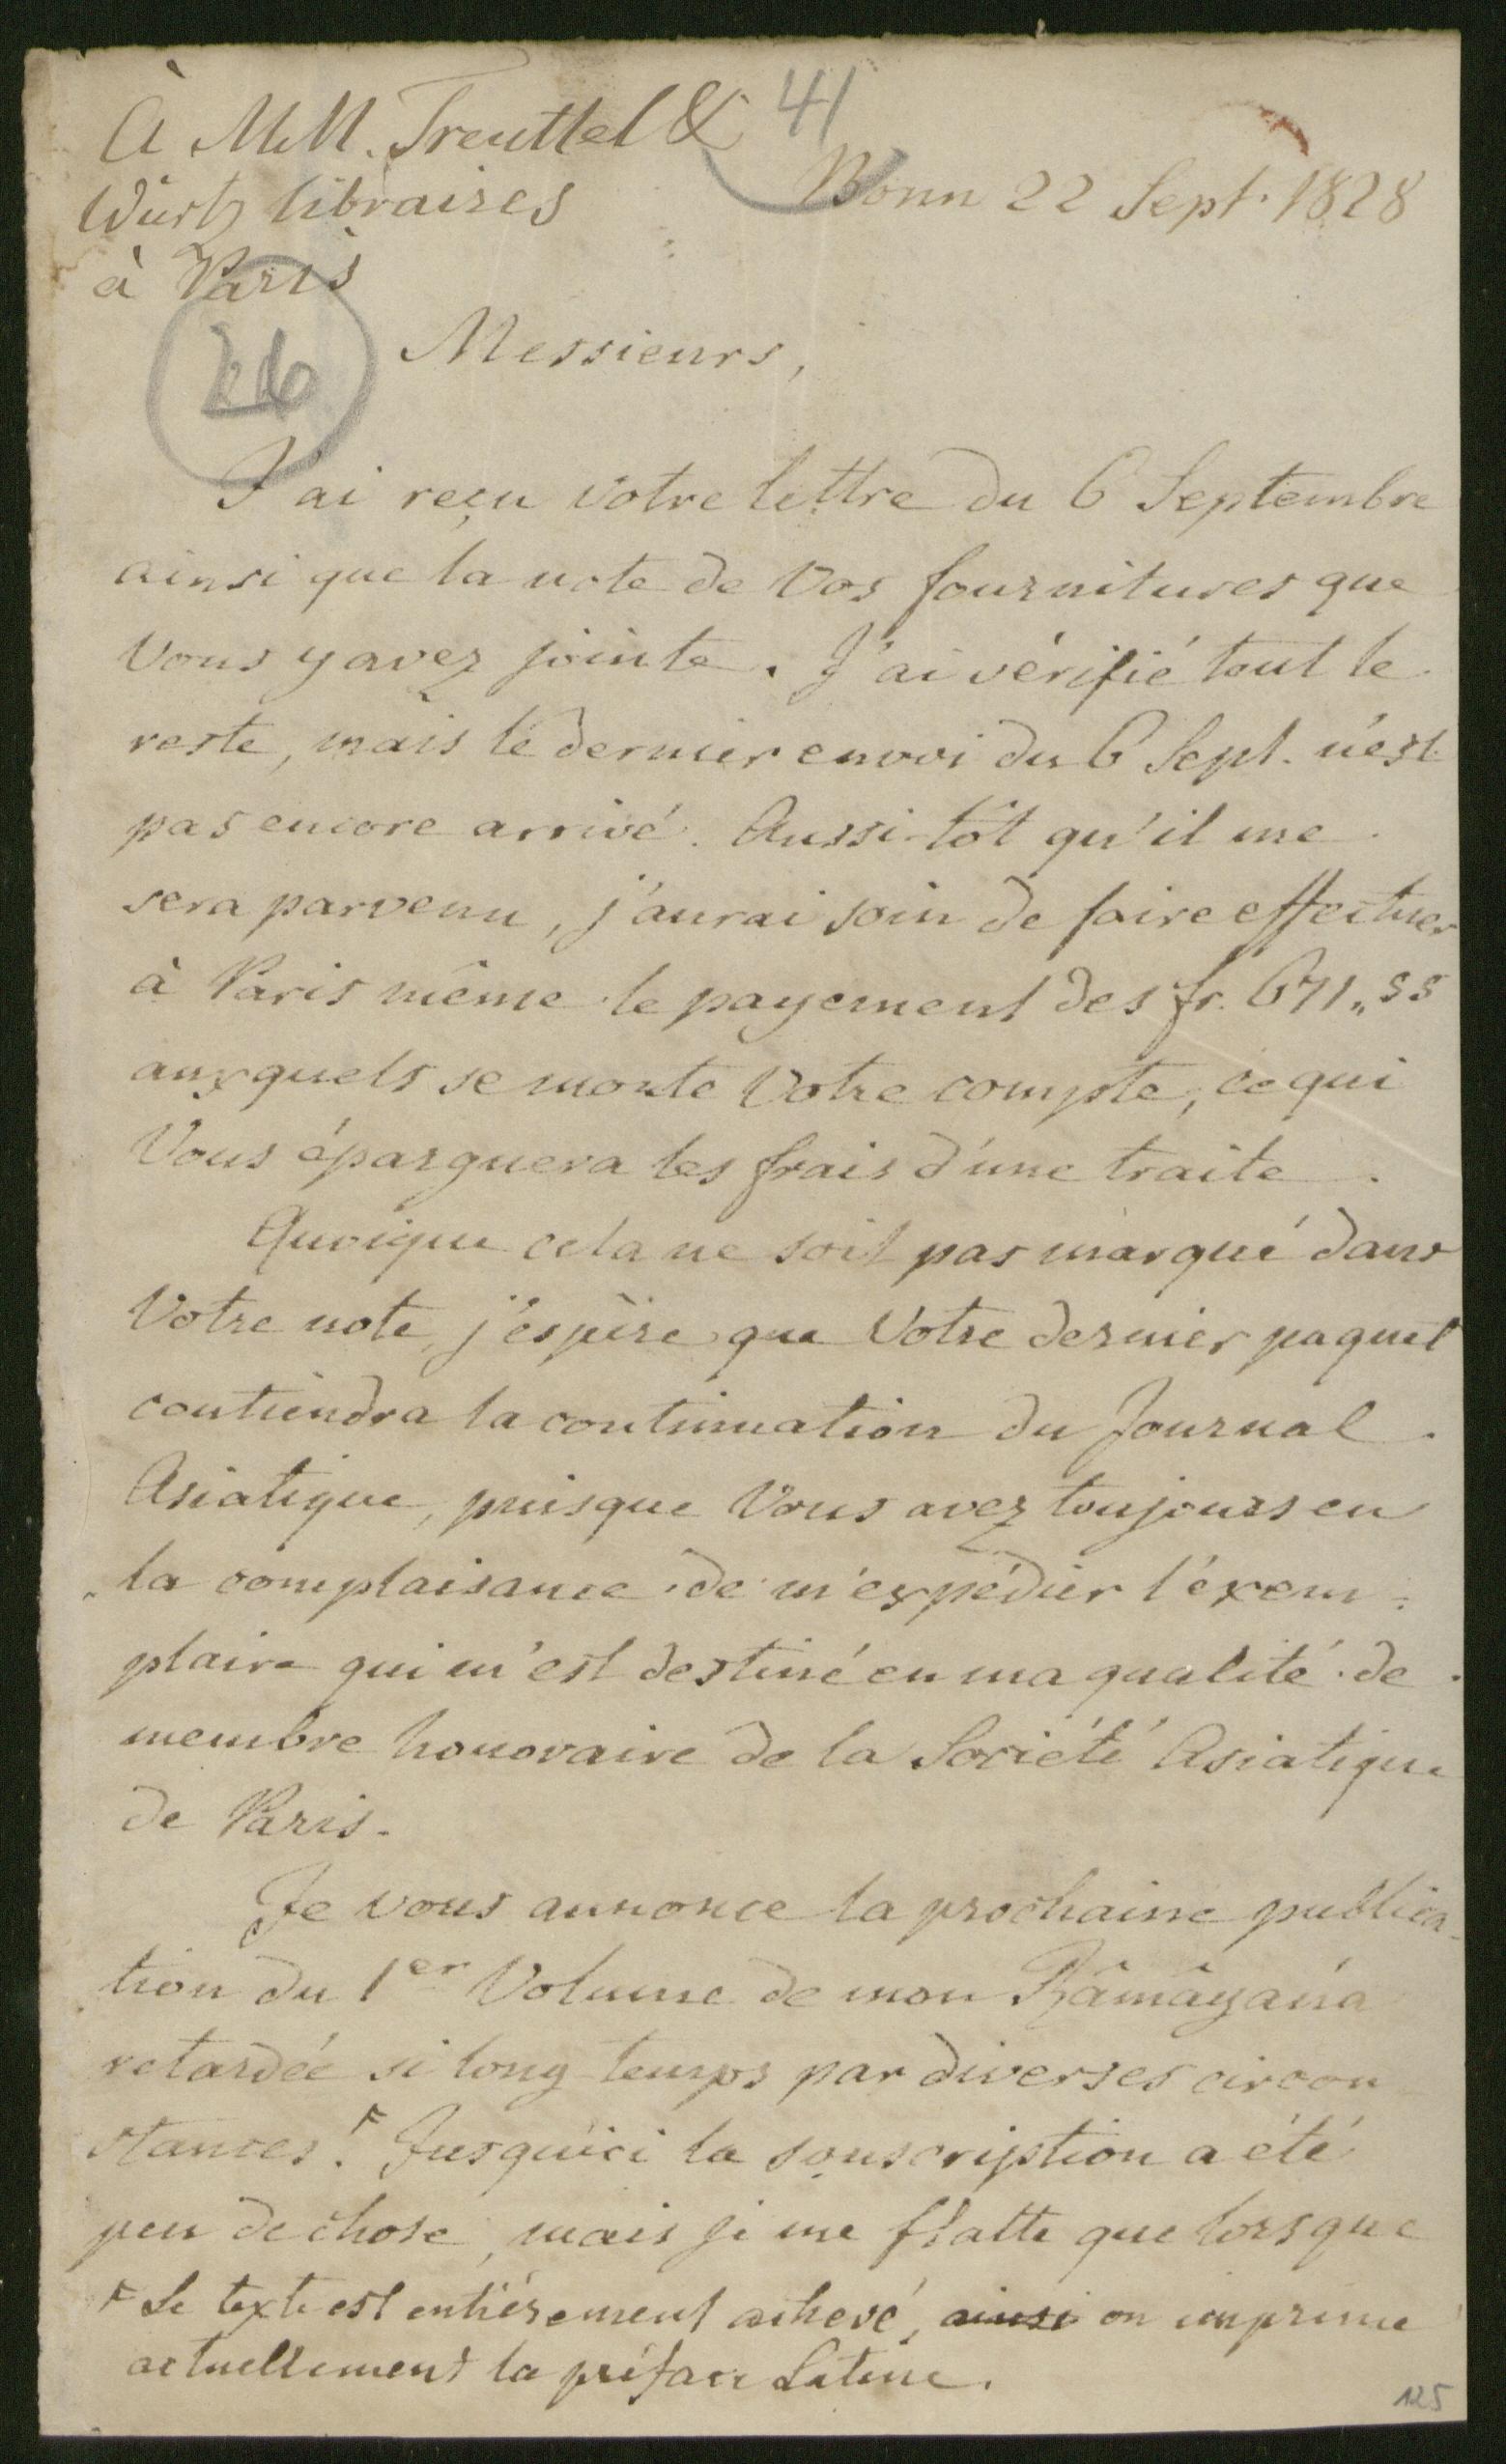 À MM. Treuttel &
Würtz libraires
à Paris
41
Bonn 22 Sept. 1828
Messieurs,
J'ai reçu votre lettre du 6 Septembre
ainsi que la note de Vos fournitures que
Vous y avez jointe. J'ai vérifié tout le
reste, mais le dernier envoi du 6 Sept. n'est
pas encore arrivé. Aussi-tôt qu'il me
sera parvenu, j'aurai soin de faire effectuer
à Paris même le payement des fr. 671,,55
auxquels se monte Votre compte, ce qui
Vous épargnera les frais d'une traite.
Quoique cela ne soit pas marqué dans
Votre note, j'espère que Votre dernier paquet
contiendra la continuation du Journal
Asiatique, puisque Vous avez toujours eu
la complaisance de m'expédier l'exem-
plaire qui m'est destiné en ma qualité de
membre honoraire de la Société Asiatique
de Paris.
Je vous annonce la prochaine publica-
tion du 1er Volume de mon Râmâyańa
retardée si long-temps par diverses circon
stances. F Jusqu'ici la souscription a été
peu de chose, mais je me flatte que lorsque
F Le texte est entièrement achevé, ainsi on imprime
actuellement la préface Latine.
125